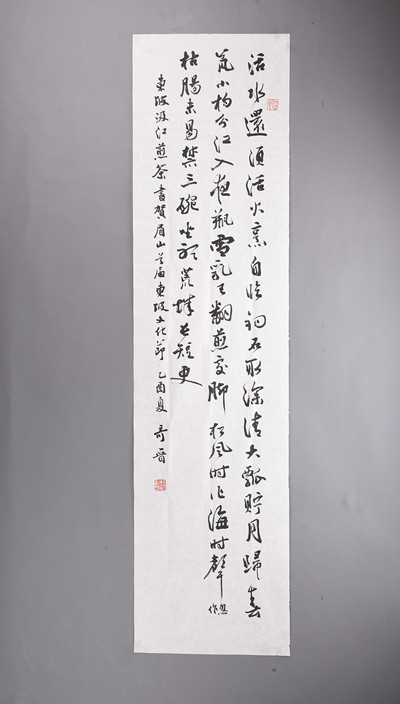 活水還須活火烹自臨釣石取深清大瓢貯月歸春
瓮小杓分江入夜瓶雪乳已翻煎處脚松風时作瀉时聲忽作
枯腸未易禁三碗坐聽荒城長短更
東坡汲江煎茶書賀眉山首届東坡文化節乙酉夏奇晉